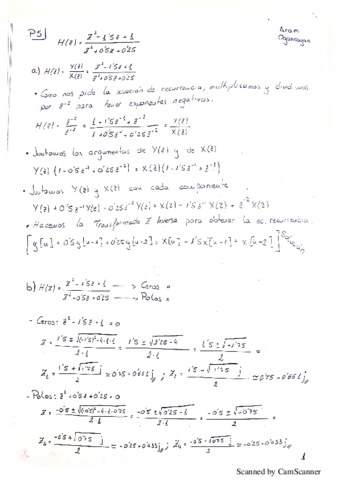 P5|
H(z) = z² - 1'5z + 1 / z² + 0'5z + 0'25
Aram
a) H(z) = Y(z) / X(z) = z² - 1'5z + 1 / z² + 0'5z + 0'25
• Como nos pide la ecuación de recurrencia, multiplicamos y dividimos
por z⁻² para tener exponentes negativos.
H(z) = z⁻² / z⁻² = 1 - 1'5z⁻¹ + z⁻² / 1 + 0'5z⁻¹ + 0'25z⁻² = Y(z) / X(z)
• Juntamos los argumentos de Y(z) y de X(z)
Y(z) (1 - 0'5z⁻¹ + 0'25z⁻²) = X(z) (1 - 1'5z⁻¹ + z⁻²)
• Juntamos Y(z) y X(z) con cada componente
Y(z) + 0'5z⁻¹ Y(z) - 0'25z⁻² Y(z) = X(z) - 1'5z⁻¹ X(z) + z⁻² X(z)
• Hacemos la Transformada Z Inversa para obtener la ec. recurrencia
[y[n] + 0'5y[n-1] + 0'25y[n-2] = x[n] - 1'5x[n-1] + x[n-2]] Solución
b) H(z) = z² - 1'5z + 1 / z² + 0'5z + 0'25 → Ceros o → Polos x
- Ceros: z² - 1'5z + 1 = 0
z = 1'5 ± √(-1'5)² - 4·1·1 / 2·1 = 1'5 ± √2'25 - 4 / 2·1 = 1'5 ± √-1'75 / 2 =
z₁ = 1'5 + √1'75 j / 2 ≃ 0'75 + 0'66j ; z₂ = 1'5 - √1'75 j / 2 ≃ 0'75 - 0'66j
- Polos: z² + 0'5z + 0'25 = 0
z = -0'5 ± √(0'5)² - 4·1·0'25 / 2·1 = -0'5 ± √0'25 - 1 / 2·1 = -0'5 ± √-0'75 / 2 =
z₃ = -0'5 + √0'75 j / 2 ≃ -0'25 + 0'433j ; z₄ = -0'5 - √0'75 j / 2 ≃ -0'25 - 0'433j
1
Scanned by CamScanner